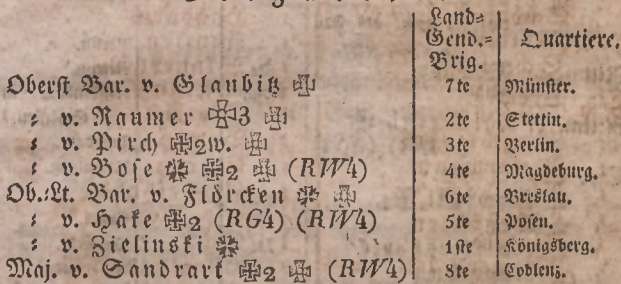 Land=
Gend.=
Brig.
Quartiere.
Oberst Bar. v. Glaubitz 7te Münster.
: v. Raumer 3 2te Stettin.
: v. Pirch 2w. 3te Berlin.
: v. Bose 2 (RW4) 4te Magdeburg.
Ob.:Lt. Bar. v. Flörcken 6te Breslau.
: v. Hake 2 (RG4) (RW4) 5te Posen.
: v. Zielinski 1ste Königsberg.
Maj. v. Sandrart 2 (RW4) 8te Coblenz.